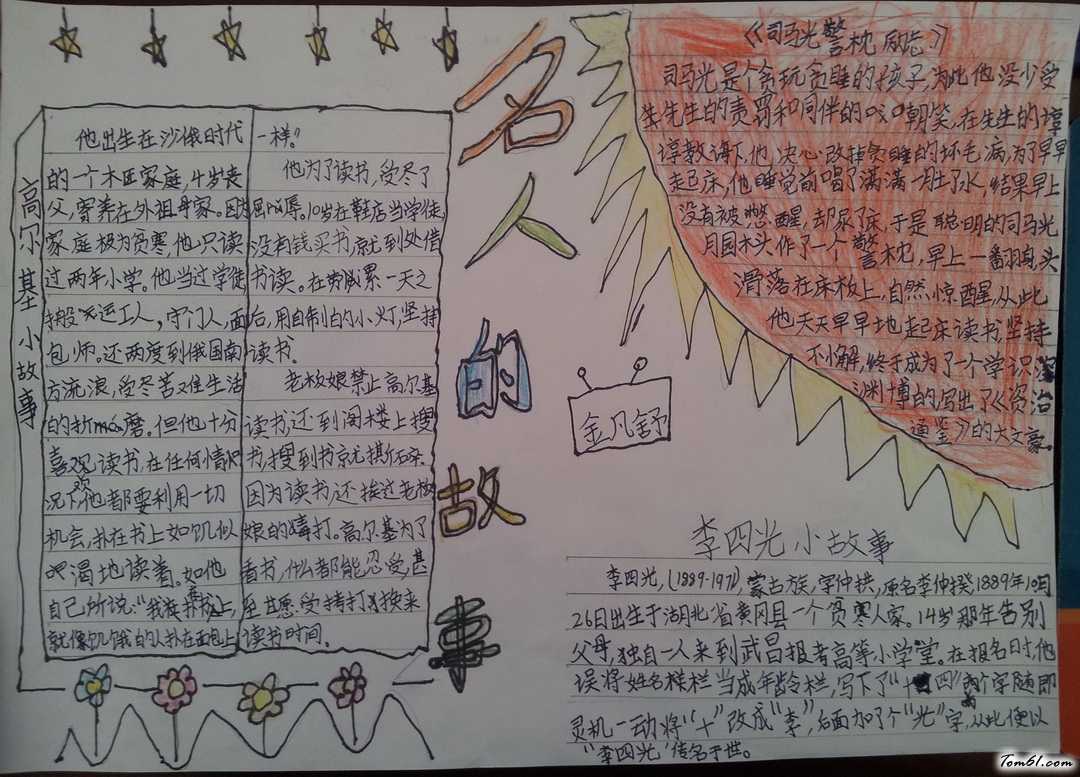 名人的故事
高尔基小故事
他出生在沙俄时代
的一个木匠家庭,4岁丧
父,寄养在外祖母家。因为
家庭极为贫寒,他只读
过两年小学。他当过学徒
搬运工人,守门人,面
包师。还两度到俄国南
方流浪,受冬苦又催生活
的折mó磨。但他十分
喜欢读书,在任何情况
况下,他都要利用一切
机会,扑在书上如饥似
渴地读着。如他
自己所说:“我扑在书上,
就像饥饿的人扑在面包上
一样”
他为了读书,受冬了
屈辱。10岁在鞋店当学徒,
没有钱买书,就到处借
书读。在劳累一天之
后,用自制的小灯,坚持
读书.
老板娘禁止高尔基
读书,还到阁楼上搜
书,搜到书就撕碎.
因为读书,还挨过老板
娘的毒打。高尔基为了
看书,什么都能忍受,甚
至甘愿受拷打换来
读书时间.
《司马光警枕励志》
司马光是个贪玩贪睡的孩子,为此他没少受
生先生的责罚和同伴的嘲笑,在先生的谆
谆教诲下,他决心改掉贪睡的坏毛病,为了早早
起床,他睡觉前喝了满满一肚子水,结果早上
没有被憋醒,却尿了床,于是聪明的司马光
用园木头作了一个警枕,早上一翻身,头
滑落在床板上,自然惊醒,从此
他天天早早地起床读书,坚持
不小懈,终于成为了一个学识
渊博的写出了《资治
通鉴》的大文豪.
金凡舒
李四光小故事
李四光,(1889-1971),蒙古族,字仲拱,原名李仲揆,1889年10月
26日出生于湖北省黄冈县一个贫寒人家。14岁那年告别
父母,独自一人来到武昌报考高等小学堂。在报名日时,他
误将姓名栏当成年龄栏,写下了“十四”两个字随即
灵机一动将“十”改成“李”,后面加了个“光”字,从此便以
“李四光”传名于世。
Tom61.com